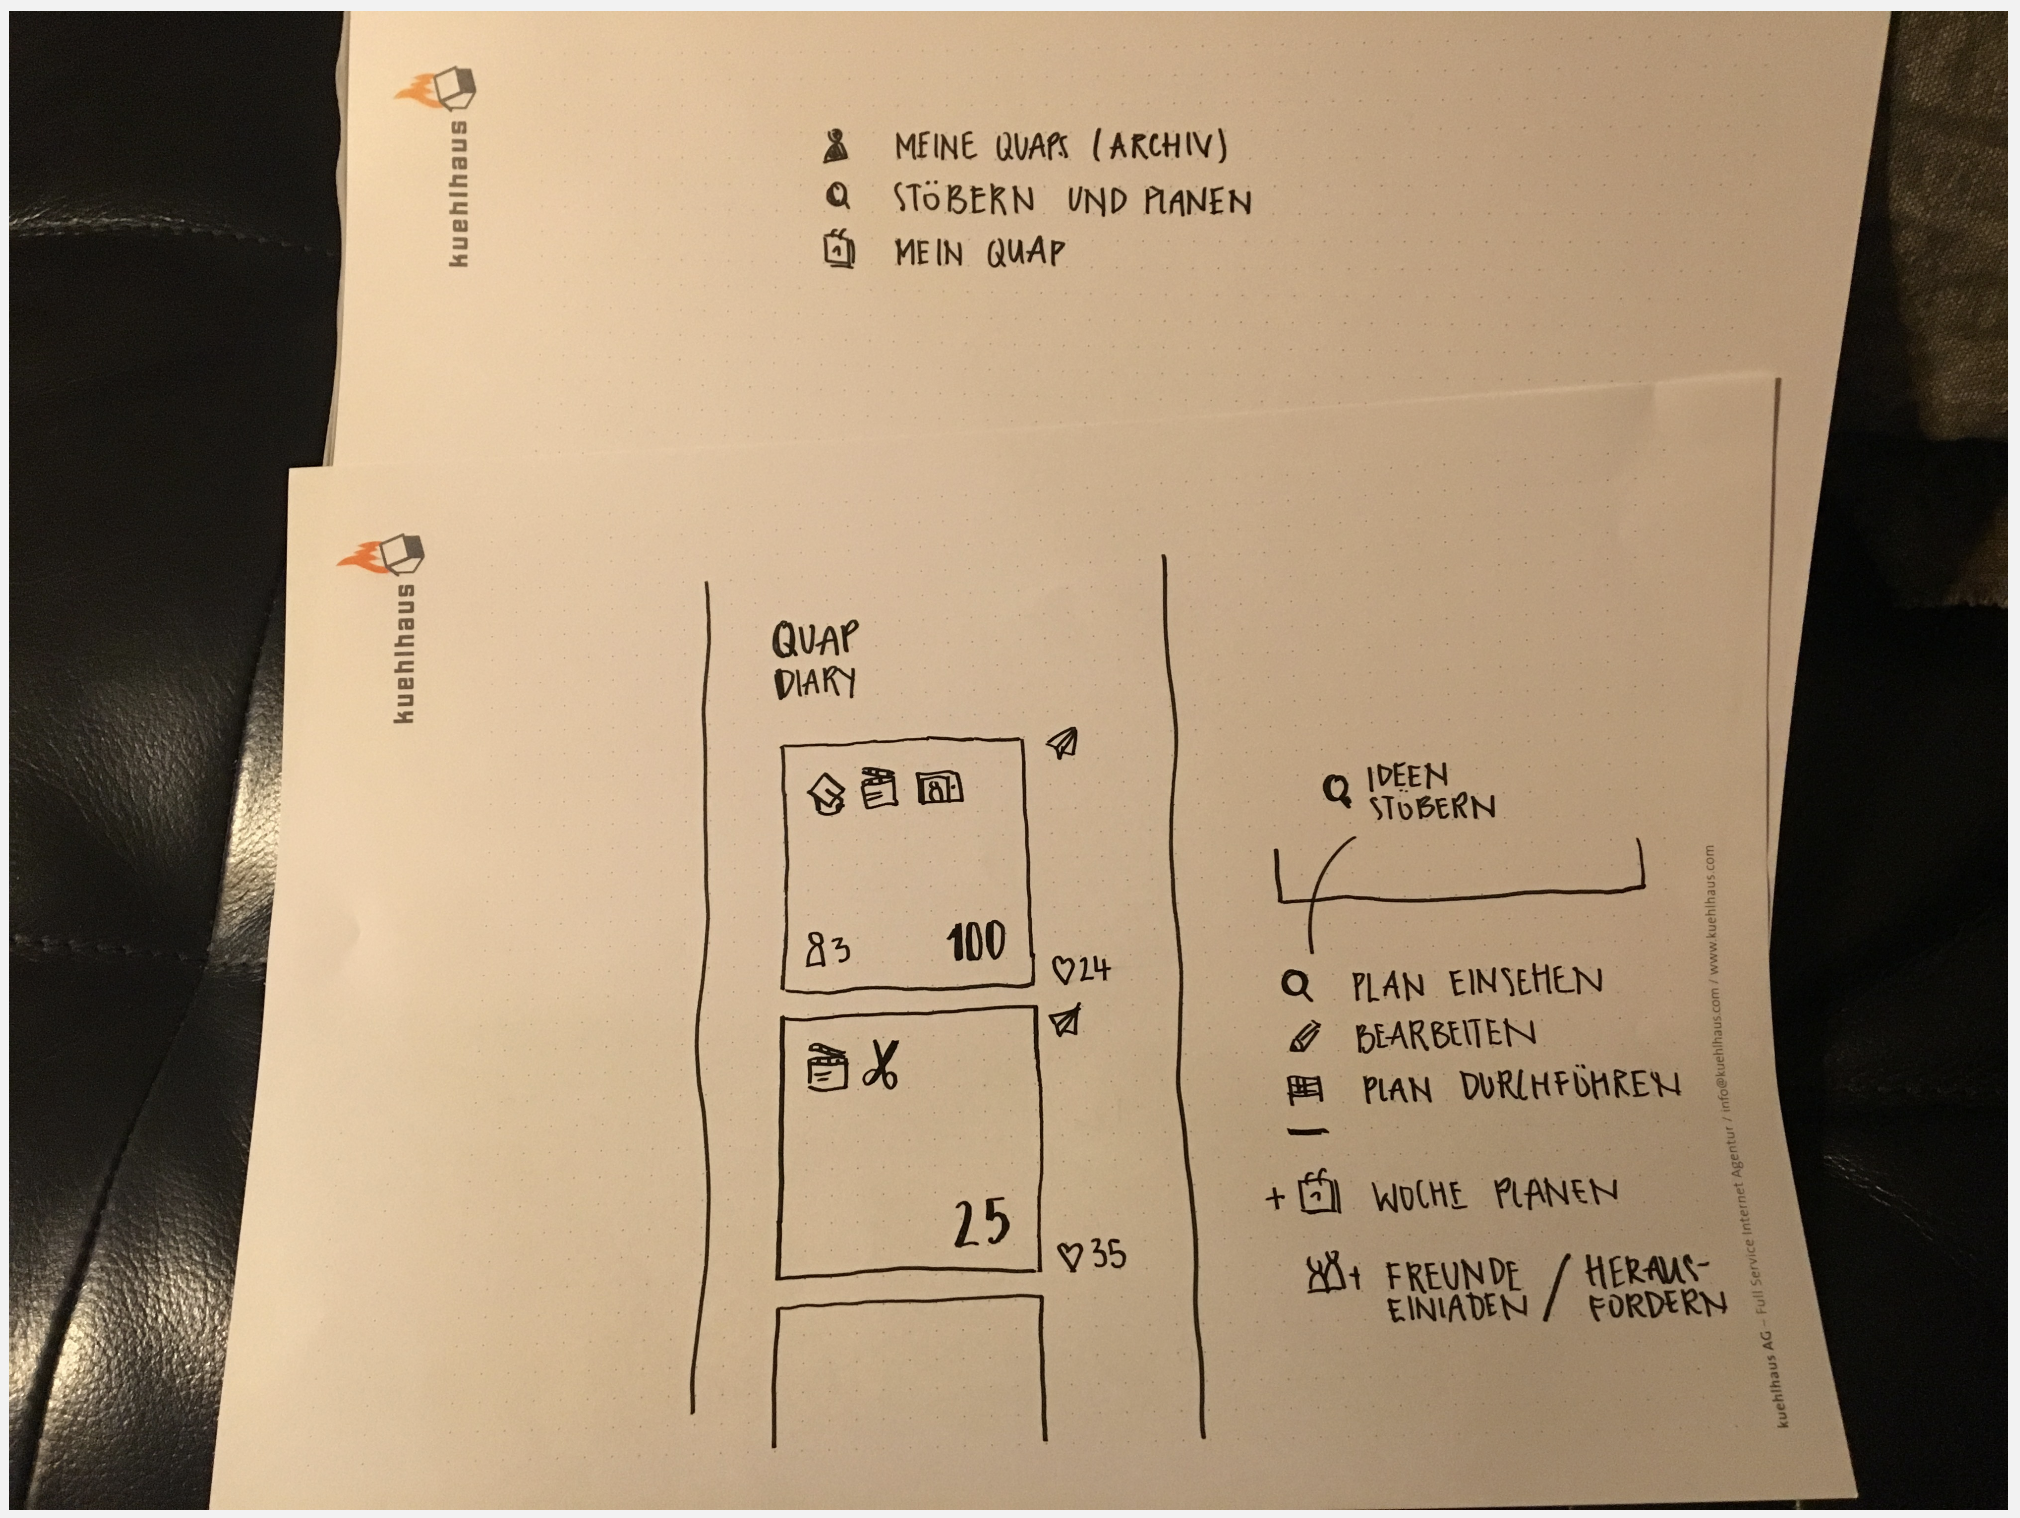 kuehlhaus
MEINE QUAPS (ARCHIV)
STÖBERN UND PLANEN
1
MEIN QUAP
kuehlhaus
QUAP
DIARY
3
100
24
25
35
IDEEN
STÖBERN
PLAN EINSEHEN
BEARBEITEN
PLAN DURCHFÜHREN
+ 1 WOCHE PLANEN
+ FREUNDE / HERAUS-
EINLADEN FORDERN
kuehlhaus AG – Full Service Internet Agentur / info@kuehlhaus.com / www.kuehlhaus.com